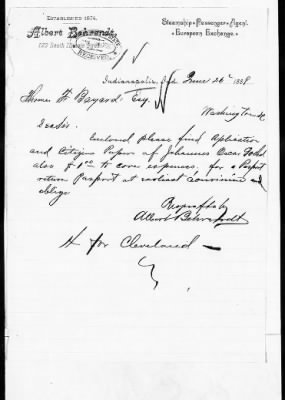 ESTABLISHED 1874.
Albert Behrendt,
Steamship & Passenger Agent,
European Exchange.
Indianapolis, Ind. June 26th 1888
Thomas F Bayard Esq.
Washington
Dear Sir.
Enclosed please find Application
and Citizens Papers of Johannes Oscar
also $1.00 to cover expenses, for a Pasport
return Pasport at earliest convinience and
oblige
Respectfully
Albert Behrendt
H for Cleveland